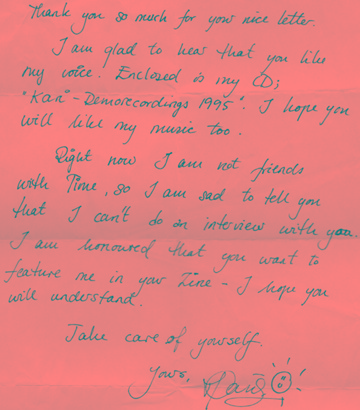 Thank you so much for your nice letter.
I am glad to hear that you like
my voice. Enclosed is my CD;
"Kari"-Demorecordings 1995". I hope you
will like my music too.
Right now I am not friends
with Time, so I am sad to tell you
that I can't do an interview with you.
I am honoured that you want to
feature me in your Zine - I hope you
will understand.
Take care of yourself.
Yours,